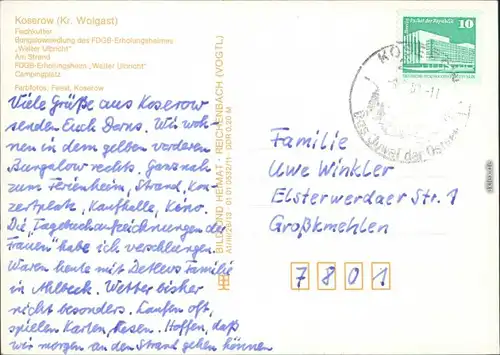 Koserow (Kr. Wolgast)
Fischkutter
Bungalowsiedlung des FDGB-Erholungsheimes
„Walter Ulbricht"
Am Strand
FDGB-Erholungsheim „Walter Ulbricht"
Campingplatz
Farbfotos: Feest, Koserow
Viele Grüße aus Koserow
senden Euch Dorns. Wir woh-
nen in dem gelben vorderen
Bungalow rechts. Ganz nah
zum Ferienheim, Strand, Kon-
zertplatz, Kaufhalle, Kino.
Die „Tagebuchaufzeichnungen der
Frauen" habe ich verschlungen.
Waren heute mit Detlevs Familie
in Ahlbeck. Wetter bisher
nicht besonders. Laufen oft,
spielen Karten, lesen. Hoffen, daß
wir morgen an den Strand gehen können
BILD UND HEIMAT REICHENBACH (VOGTL)
DDR 0,20 M
Palast der Republik
10
DDR
Das Juwel der Ostsee
Familie
Uwe Winkler
Elsterwerdaer Str. 1
Großkmehlen
7801